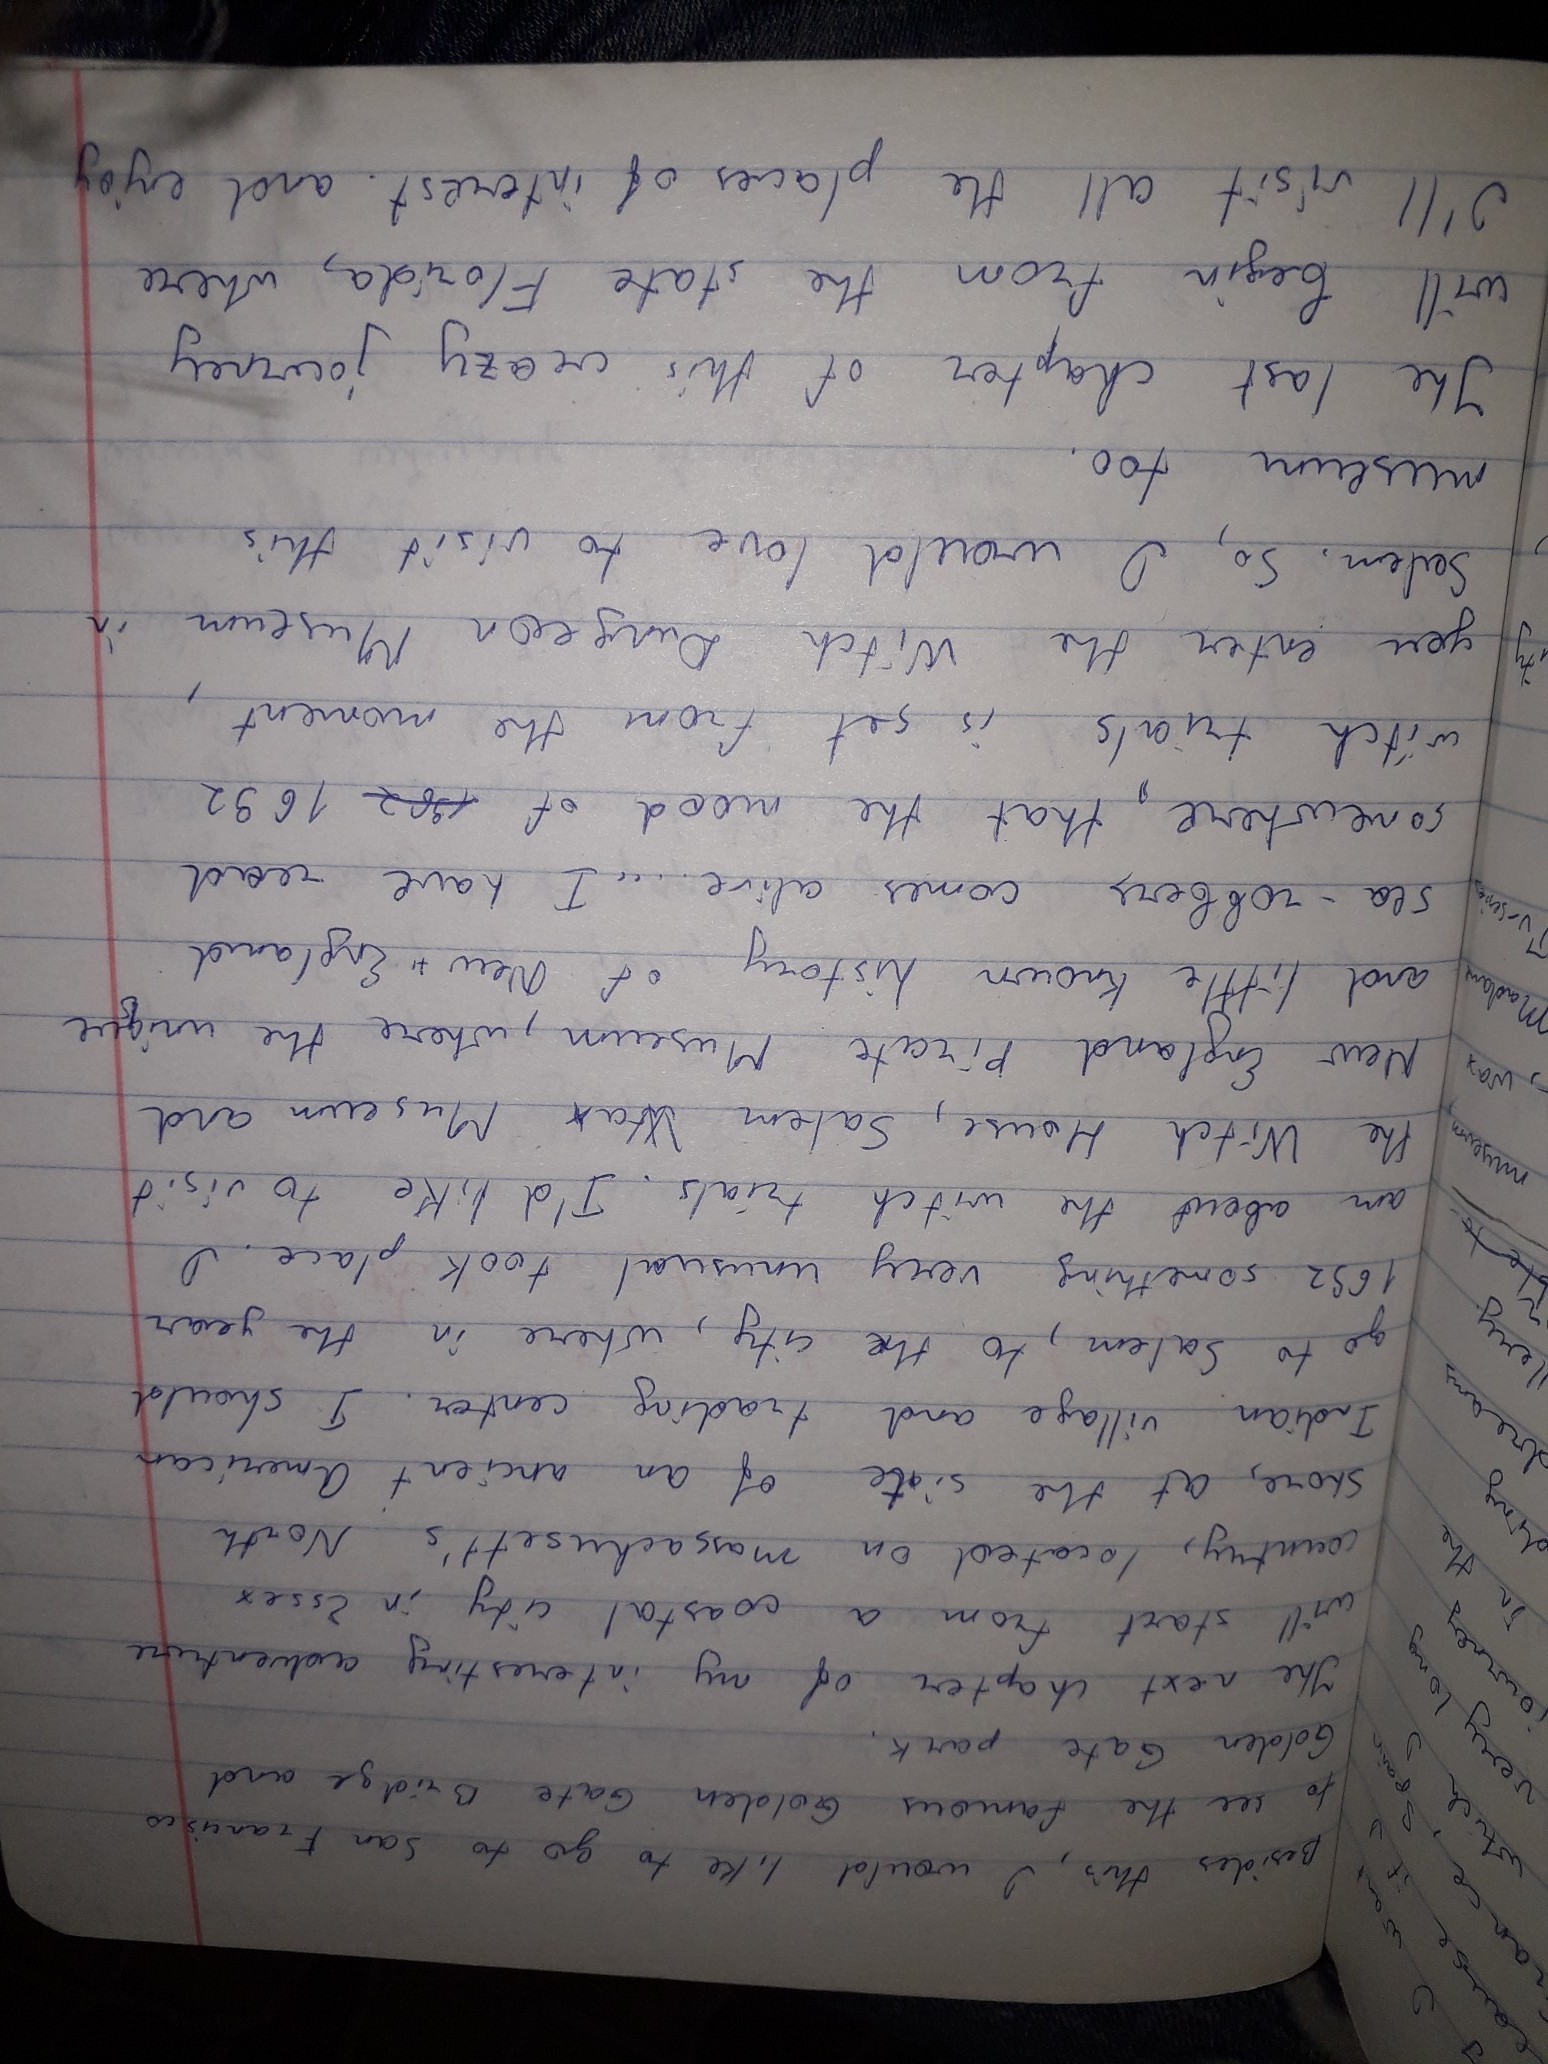 Besides this, I would like to go to San Francisco
to see the famous Golden Gate Bridge and
Golden Gate park.
The next chapter of my interesting adventure
will start from a coastal city in Essex
country, located on massachusett's North
shore, at the site of an ancient American
Indian village and trading center. I should
go to Salem, to the city, where in the year
1692 something very unusual took place. I
am about the witch trials. I'd like to visit
the Witch House, Salem Wax Museum and
New England Pirate Museum, where the unique
and little known history of New England
sea-robbers comes alive... I have read
somewhere, that the mood of 1692
witch trials is set from the moment,
you enter the Witch Dungeon Museum in
Salem. So, I would love to visit this
museum too.
The last chapter of this crazy journey
will begin from the state Florida, where
I'll visit all the places of interest. and enjoy
museum,
, wax
Madam
TV-series
very long
journey
in the
dreams
which